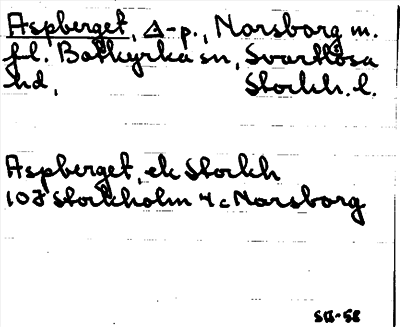 Aspberget, Δ-p., Norsborg m.
fl. Botkyrka sn, Svartlösa
hd, Stockh. l.
Aspberget, ek Stockh
10J Stockholm 4c Norsborg